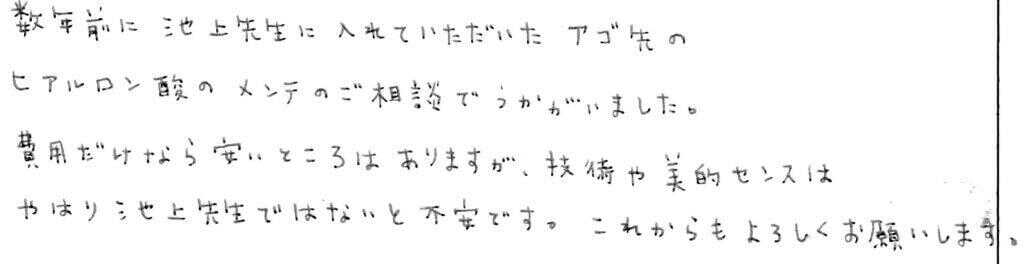 数年前に池上先生に入れていただいたアゴ先の
ヒアルロン酸のメンテのご相談でうかがいました。
費用だけなら安いところはありますが、技術や美的センスは
やはり池上先生ではないと不安です。これからもよろしくお願いします。